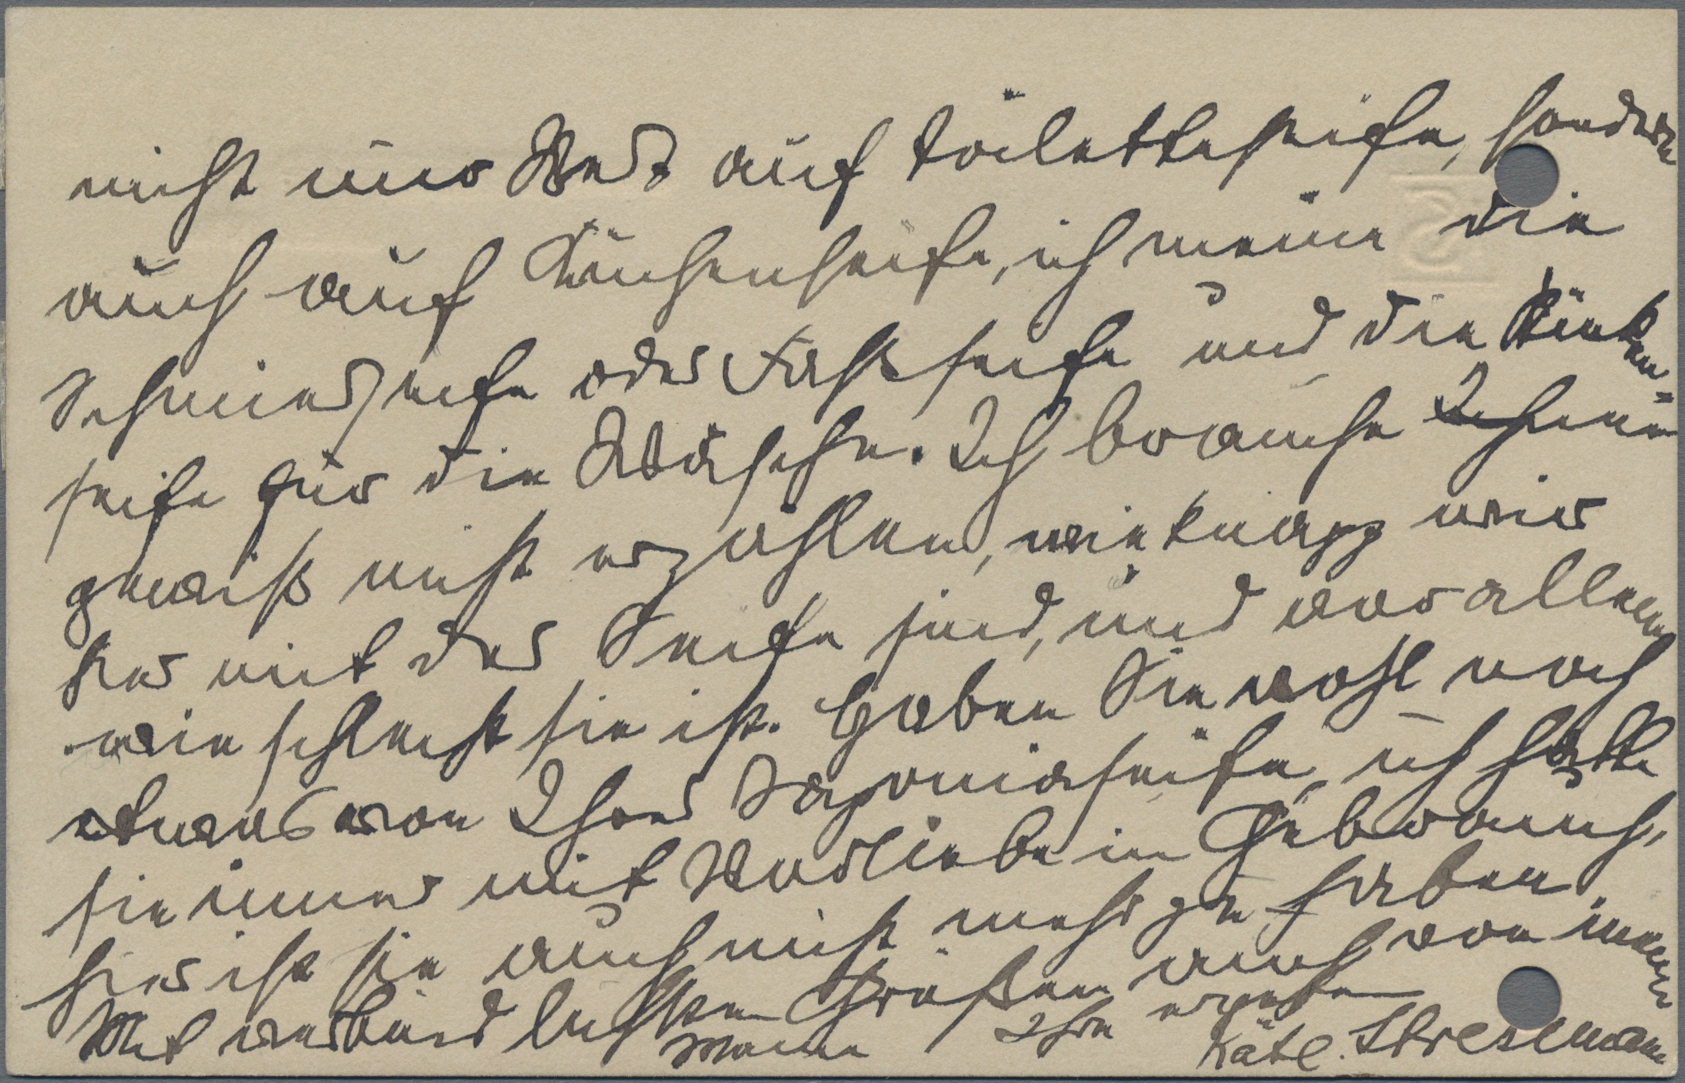 nicht nur Wert auf Toiletteseife, sondern
auch auf Küchenseife, ich meine die
Schmierseife oder Faßseife und die Stücken-
seife für die Wäsche. Ich brauche Ihnen
gewiß nicht erzählen, wie knapp wir
hier mit der Seife sind, und vor allem
wie schlecht sie ist. Haben Sie wohl noch
etwas von Ihrer Saponiaseife, ich hatte
sie immer mit Vorliebe im Gebrauch,
hier ist sie auch nicht mehr zu haben.
Mit verbindlichsten Grüßen auch von meinem
Manne Ihre ergebene
Käte Stresemann